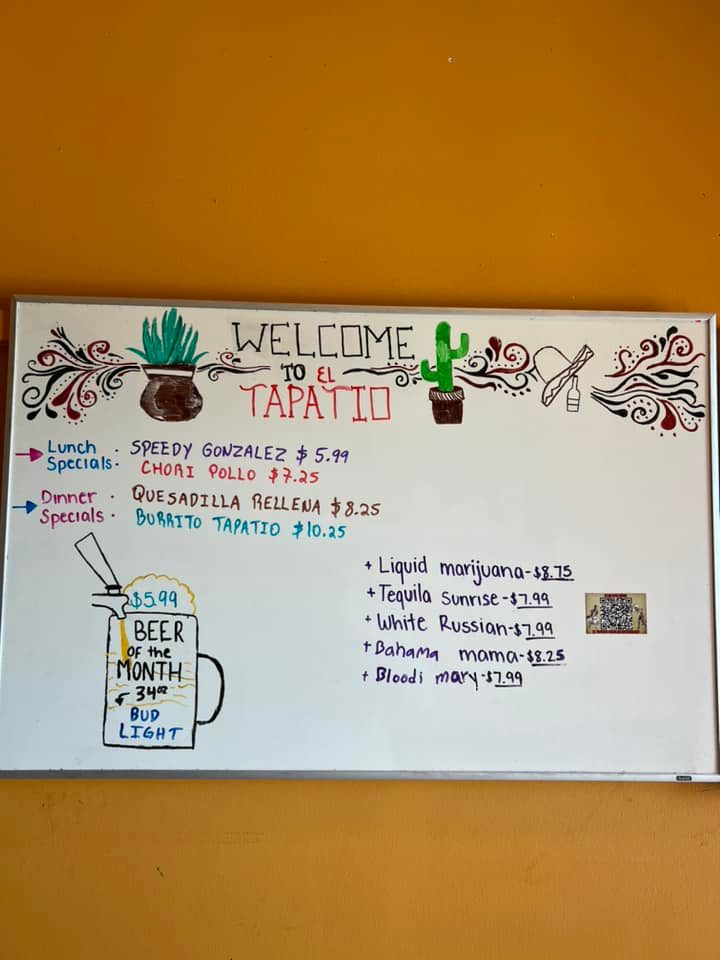 WELCOME
TO EL
TAPATIO
Lunch · SPEEDY GONZALEZ $5.99
Specials · CHORI POLLO $7.25
Dinner · QUESADILLA RELLENA $8.25
Specials · BURRITO TAPATIO $10.25
$5.99
BEER
OF the
MONTH
34oz
BUD
LIGHT
+ Liquid marijuana-$8.75
+ Tequila Sunrise-$7.99
+ White Russian-$7.99
+ Bahama mama-$8.25
+ Bloodi mary-$7.99